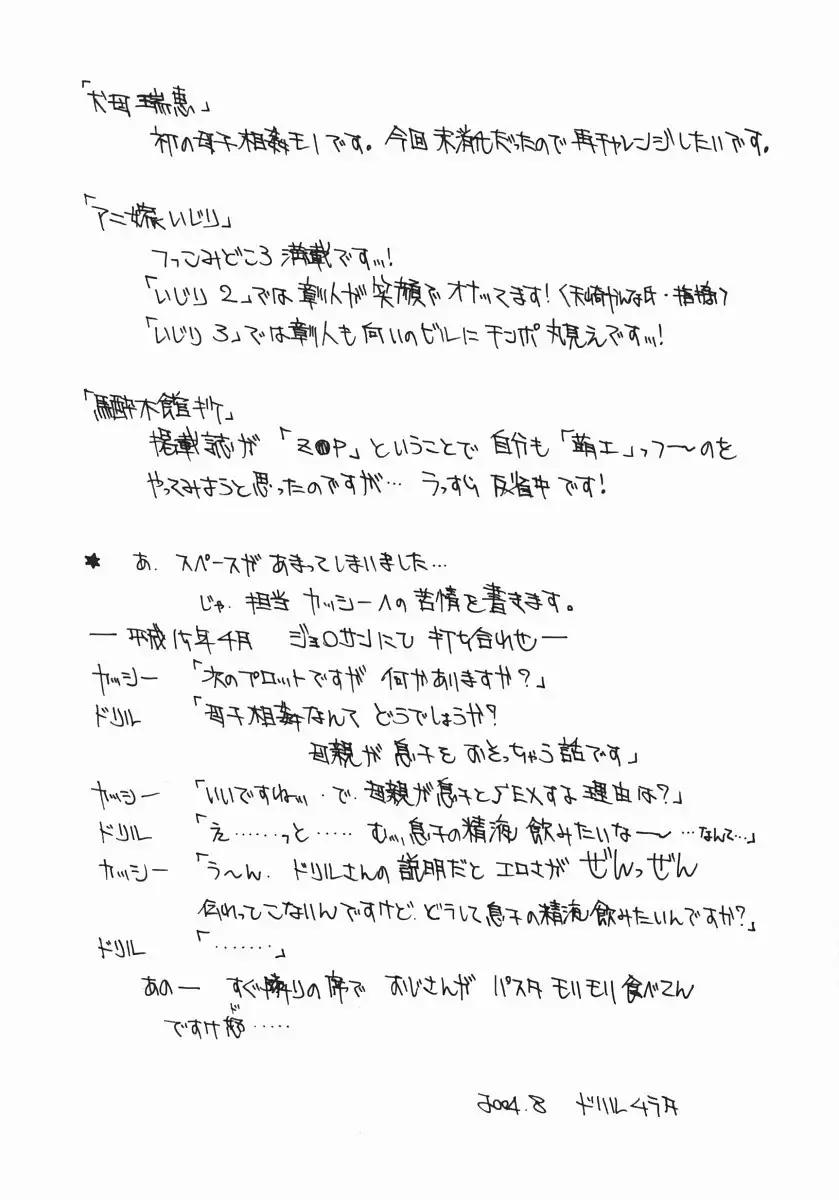 「犬母瑞恵」
初の母子相姦モノです。今回未消化だったので再チャレンジしたいです。
「アニ嫁いじり」
つっこみどころ満載ですッ!
「いじり2」では彰人が笑顔でオナッてます!〈天崎かんな氏・指摘〉
「いじり3」では彰人も向いのビルにチンポ丸見えですッ!
「馬酔木館
掲載誌が「Z●P」ということで自分も「萌エ」っつ〜のを
やってみようと思ったのですが… うっすら反省中です!
★ あ.スペースがあまってしまいました…
じゃ.担当カッシーへの苦情を書きます。
― 平成 年4月 ジョ サンにて 打ち合わせ ―
カッシー 「次のプロットですが何かありますか?」
ドリル 「母子相姦なんてどうでしょうか?
母親が息子をおそっちゃう話です」
カッシー 「いいですねッ.で.母親が息子とSEXする理由は?」
ドリル 「え……っと…… むッ,息子の精液飲みたいな〜…なんて…」
カッシー 「う〜ん.ドリルさんの説明だとエロさがぜんっぜん
伝わってこないんですけど.どうして息子の精液飲みたいんですか?」
ドリル 「……‥」
あのー すぐ隣りの席でおじさんがパスタモリモリ食べてん
ですけど……
2004.8 ドリルムラタ